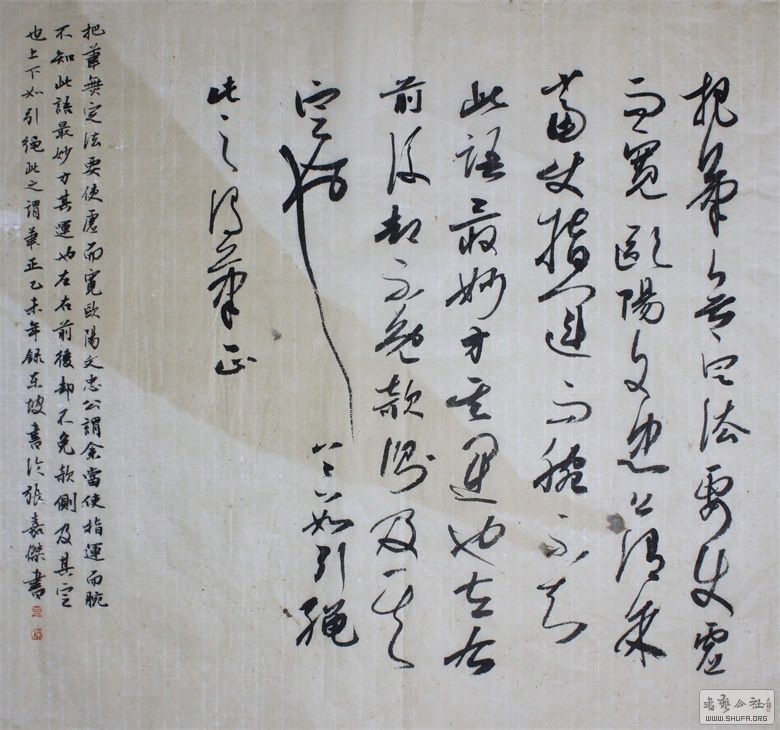 把筆無定法要使虛
而寬歐陽文忠公謂余
當使指運而腕不知
此語最妙方其運也左右
前後却不免欹側及其
定也上下如引繩
此之謂筆正
把筆無定法要使虛而寬歐陽文忠公謂余當使指運而腕
不知此語最妙方其運也左右前後却不免欹側及其定
也上下如引繩此之謂筆正乙未年錄東坡書論張嘉傑書
書藝公社
WWW.SHUFA.ORG